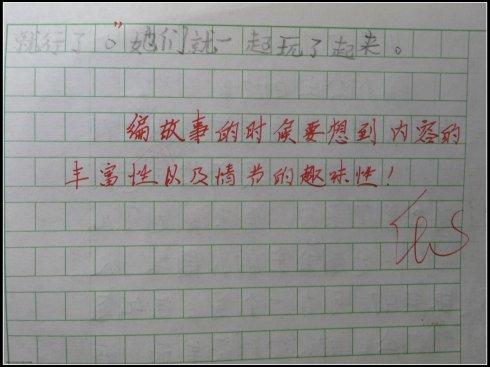 就行了。”她们就一起玩了起来。
编故事的时候要想到内容的
丰富性以及情节的趣味性！